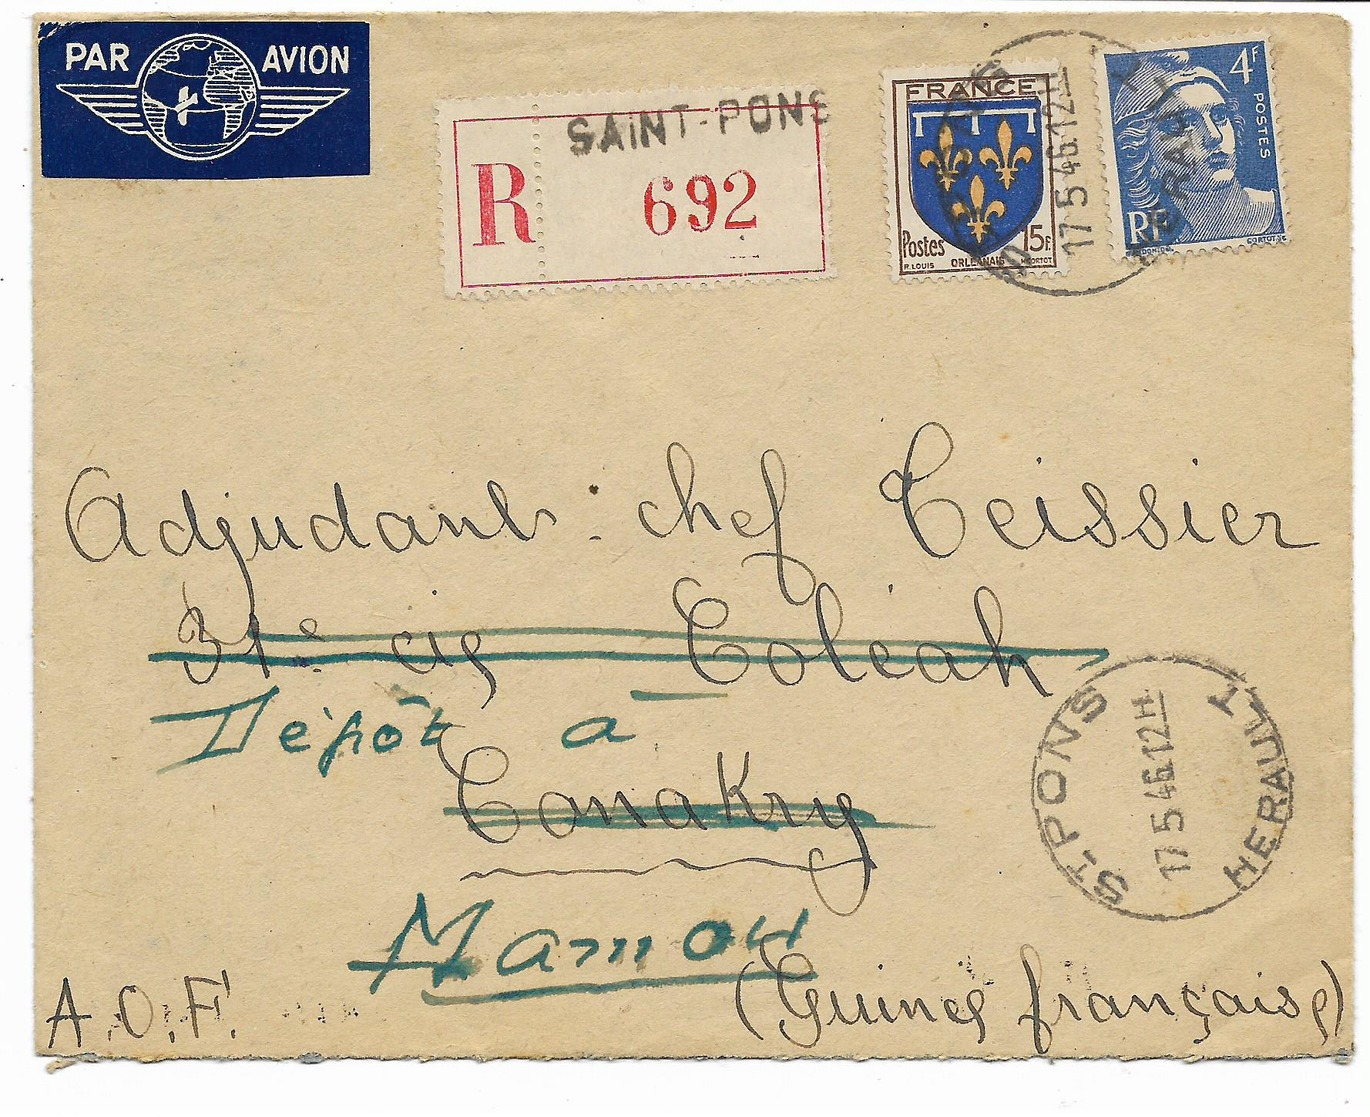 PAR AVION
R
SAINT-PONS
692
FRANCE
Postes 15F.
R. LOUIS ORLEANAIS H. CORTOT
4F
POSTES
RF
GANDON DEL.
CORTOT. SC
17 5 46.12H
HERAULT
Adjudant-chef Teissier
31e cie Coléah
Dépôt à
Conakry
Mamou
ST-PONS
17 5 46.12H
HERAULT
A.O.F.
(Guinée française)